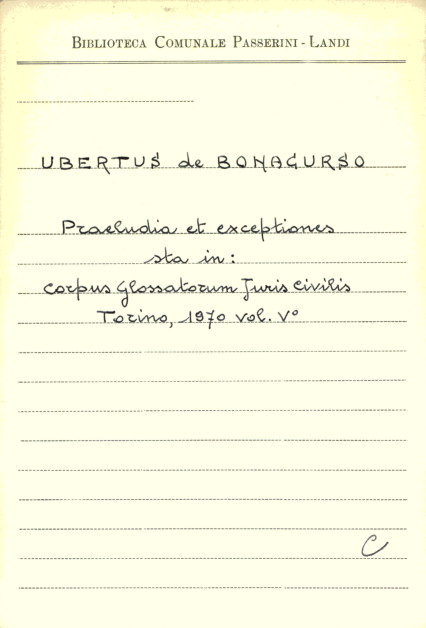 BIBLIOTECA COMUNALE PASSERINI - LANDI
UBERTUS de BONACURSO
Praeludia et exceptiones
sta in:
Corpus Glossatorum Juris Civilis
Torino, 1970 vol. V°
C